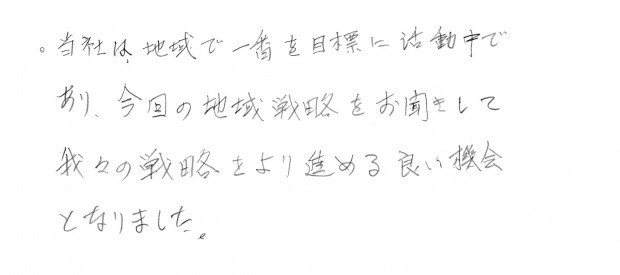 。当社は、地域で一番を目標に活動中で
あり、今回の地域戦略をお聞きして
我々の戦略をより進める良い機会
となりました。